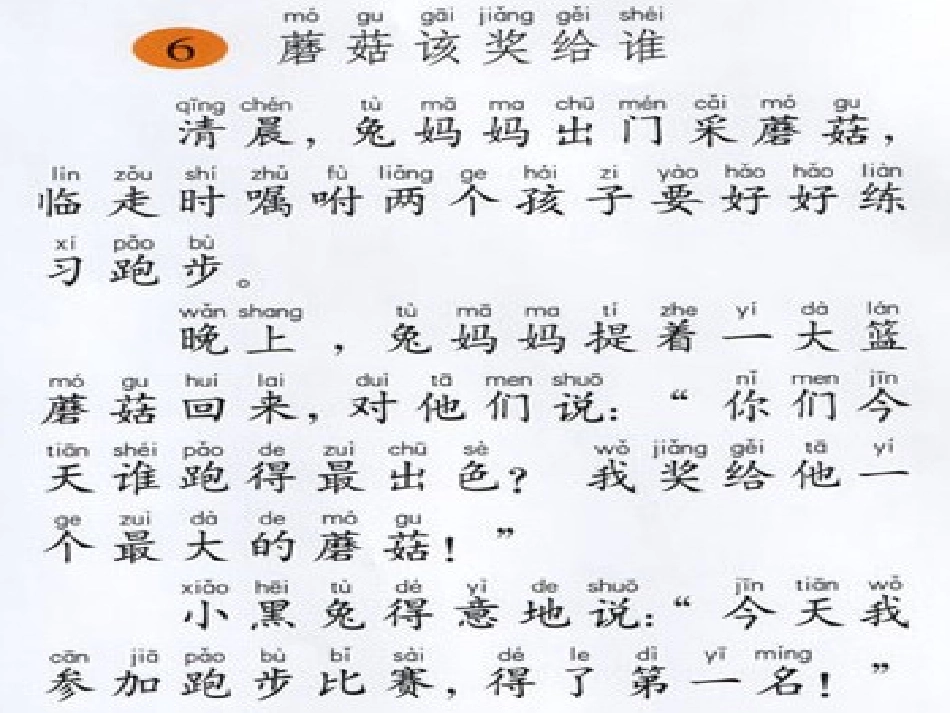 mó gu gāi jiǎng gěi shéi
6 蘑菇该奖给谁
qīng chén tù mā ma chū mén cǎi mó gu
清晨，兔妈妈出门采蘑菇，
lín zǒu shí zhǔ fù liǎng ge hái zi yào hǎo hǎo liàn
临走时嘱咐两个孩子要好好练
xí pǎo bù
习跑步。
wǎn shang tù mā ma tí zhe yí dà lán
晚上，兔妈妈提着一大篮
mó gu huí lai duì tā men shuō nǐ men jīn
蘑菇回来，对他们说：“你们今
tiān shéi pǎo de zuì chū sè wǒ jiǎng gěi tā yí
天谁跑得最出色？我奖给他一
ge zuì dà de mó gu
个最大的蘑菇！”
xiǎo hēi tù dé yì de shuō jīn tiān wǒ
小黑兔得意地说：“今天我
cān jiā pǎo bù bǐ sài dé le dì yī míng
参加跑步比赛，得了第一名！”